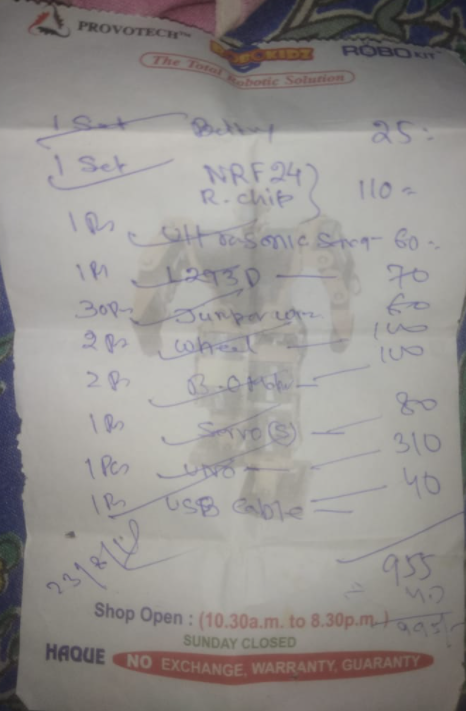 PROVOTECH™ ROBOKIT
The Total Robotic Solution
1 Set Battery 25=
1 Set NRF24
R-chip 110=
1 Ps Ultrasonic 60=
1 Ps L293D 70
30Ps Jumper 60
2 Ps Wheel 100
2 Ps B.O 100
1 Ps Servo(S) 80
1 Pcs UNO 310
1 Ps USB Cable 40
955
40
995/-
Shop Open : (10.30a.m. to 8.30p.m.)
SUNDAY CLOSED
HAQUE NO EXCHANGE, WARRANTY, GUARANTY